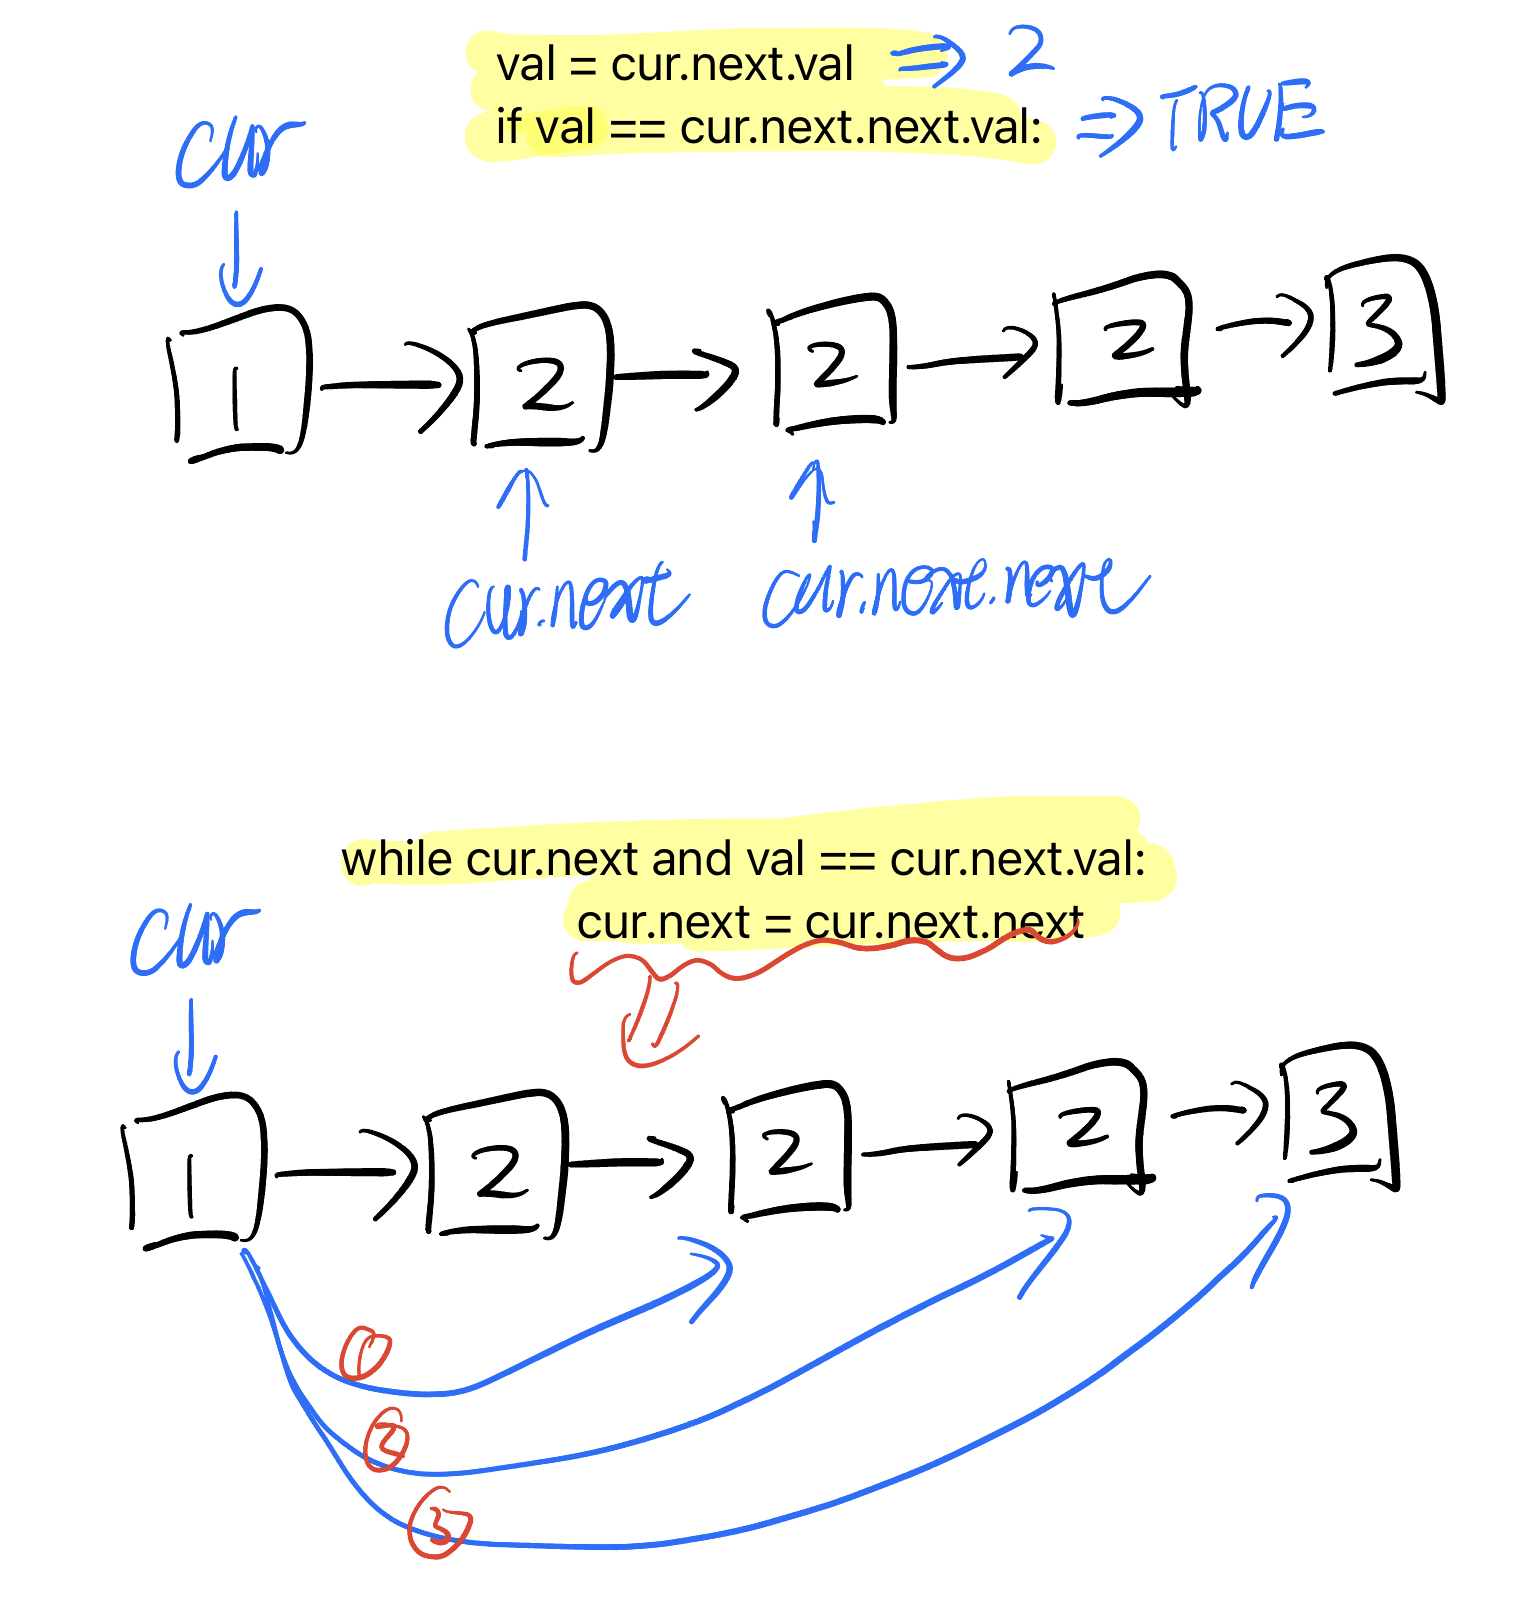 val = cur.next.val ⇒ 2
if val == cur.next.next.val: ⇒ TRUE
cur
1 → 2 → 2 → 2 → 3
cur.next cur.next.next
while cur.next and val == cur.next.val:
cur.next = cur.next.next
cur
1 → 2 → 2 → 2 → 3
①
②
③